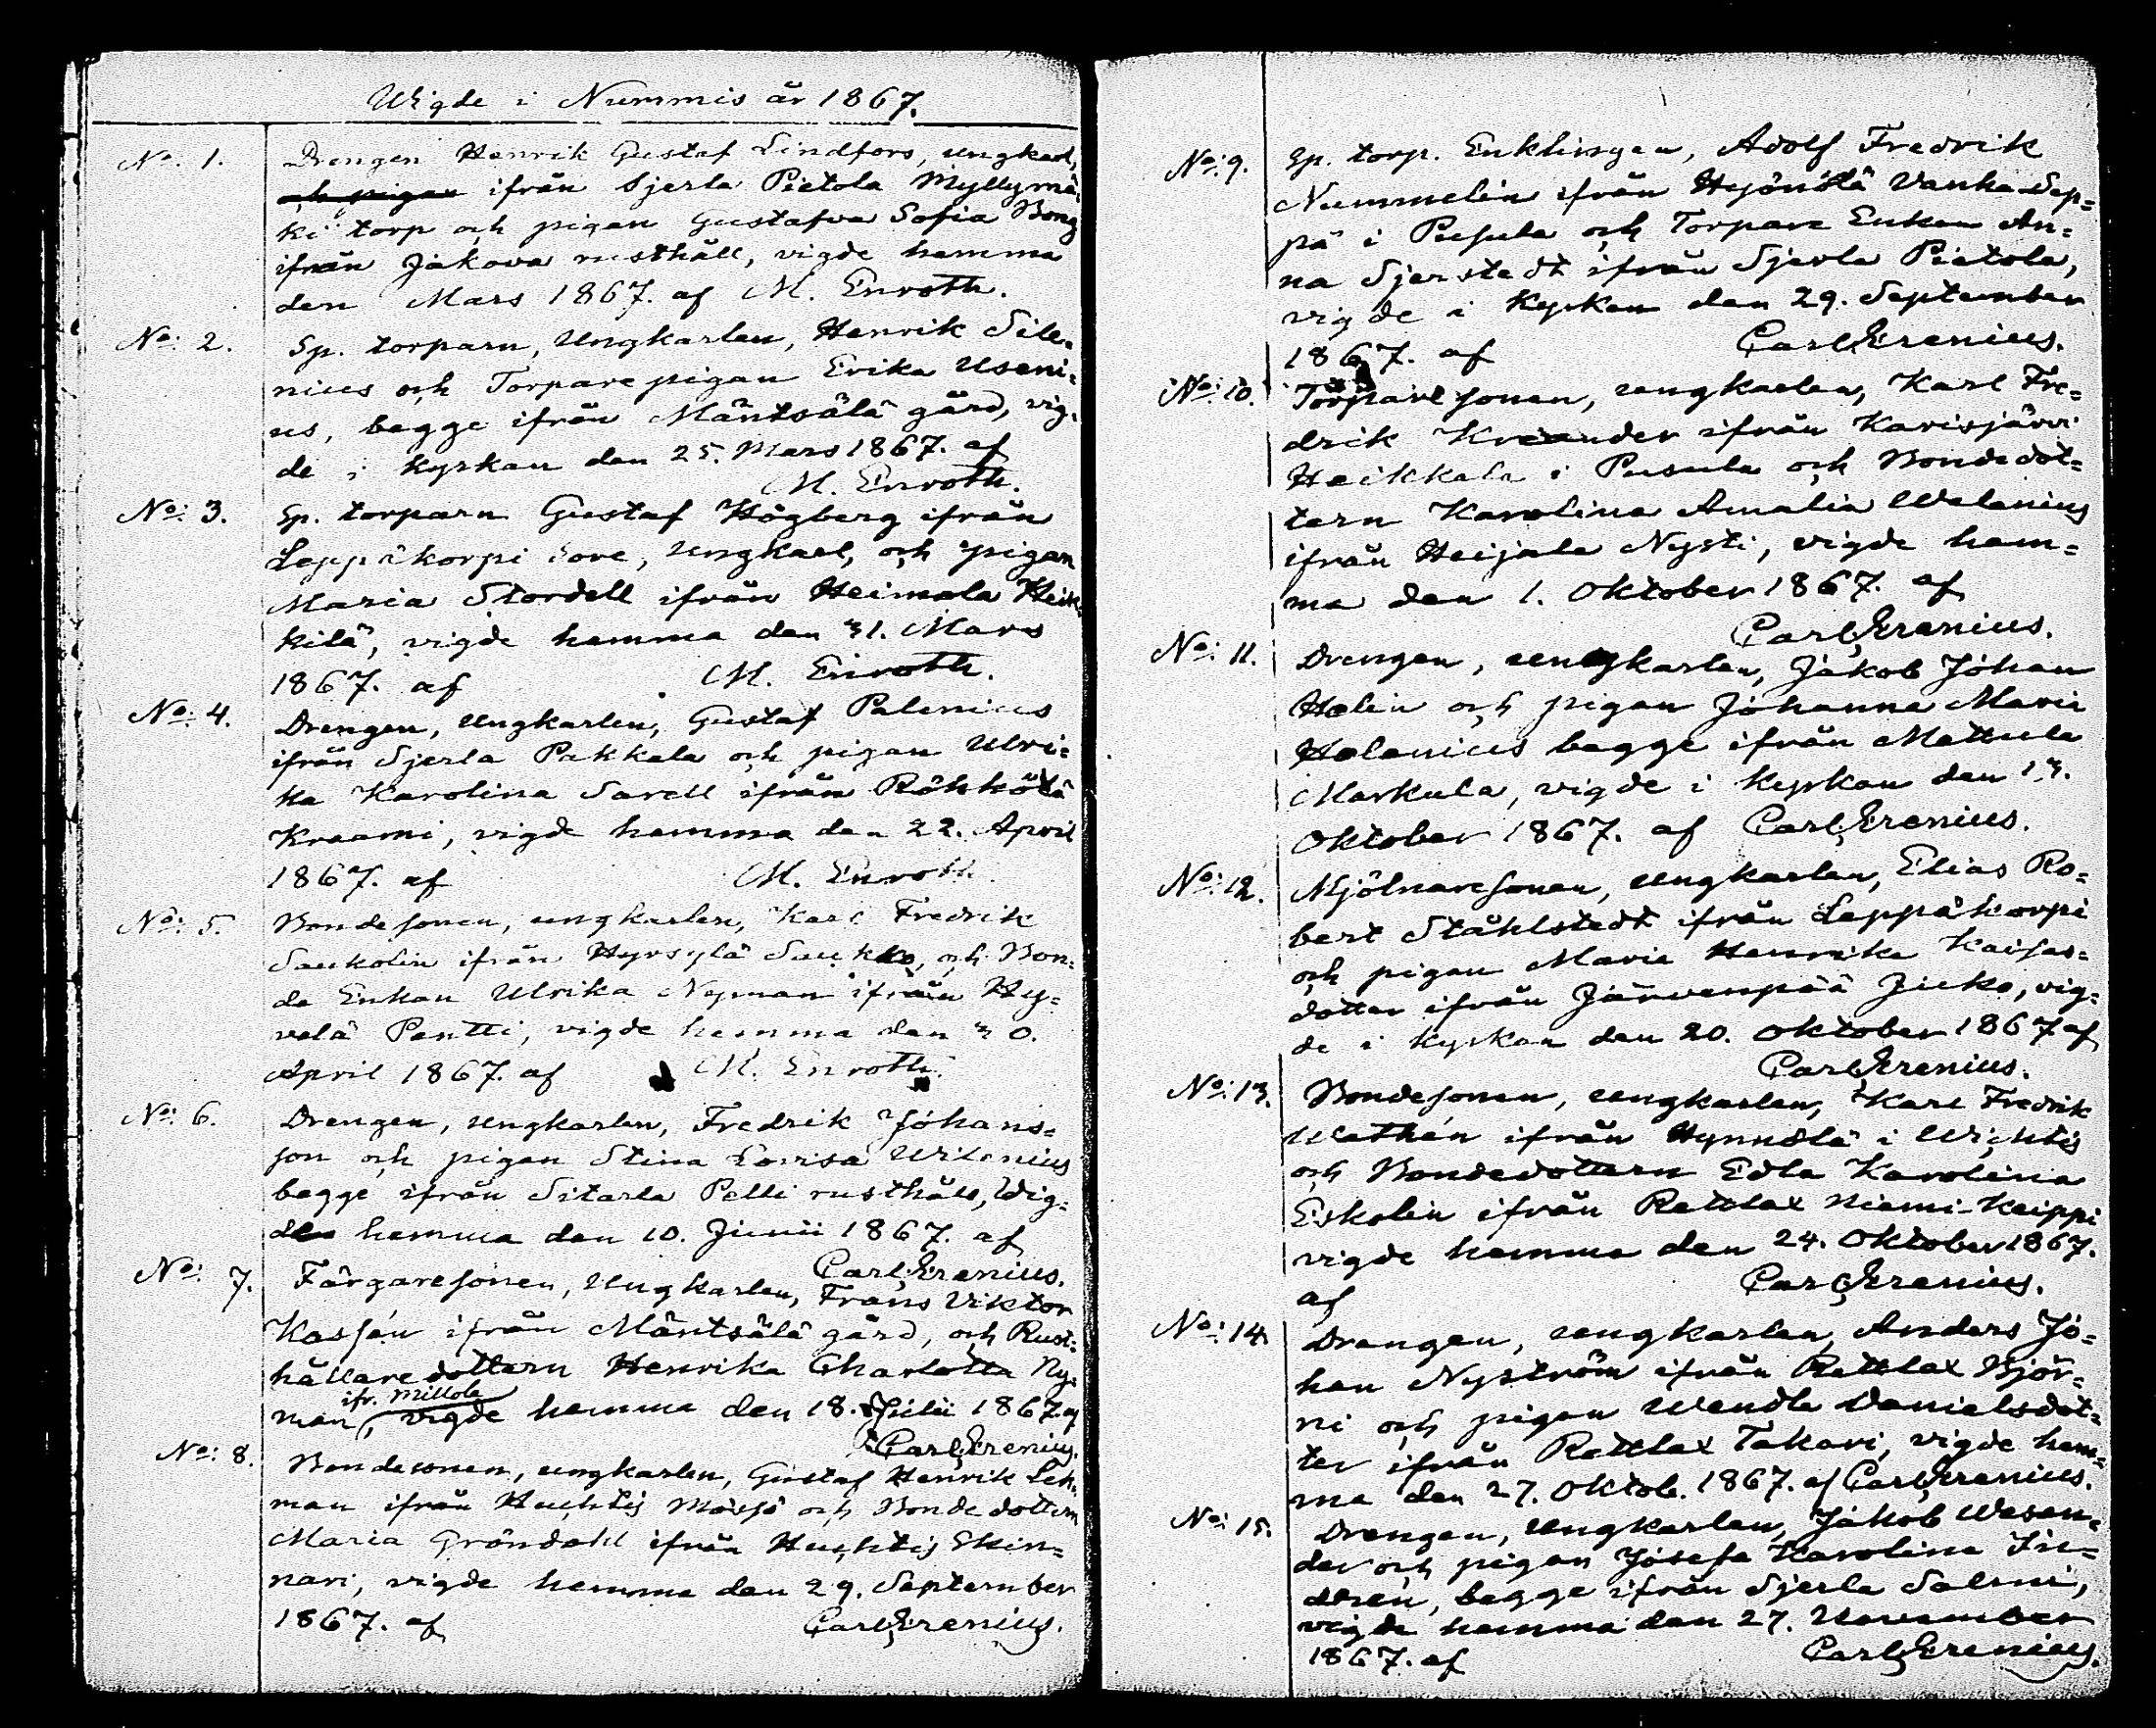 Wigde i Nummis år 1867.
No: 1. Drengen Henrik Gustaf Lindfors, ungkarl,
och pigan ifrån Sjerla Pietola Myllymä-
ki torp och pigan Gustafva Sofia Bong
ifrån Jakova rusthåll, vigde hemma
den Mars 1867. af M. Enroth.
No: 2. Sp. torparn, Ungkarlen, Henrik Sile-
nius och Torpare pigan Erika Useni-
us, begge ifrån Mäntsälä gård, vig-
de i Kyrkan den 25. Mars 1867. af
M. Enroth.
No: 3. Sp. torparn Gustaf Högberg ifrån
Leppäkorpi Sore, Ungkarl, och pigan
Maria Stordell ifrån Heimola Heik-
kilä, vigde hemma den 31. Mars
1867. af M. Enroth.
No: 4. Drengen, Ungkarlen, Gustaf Palenius
ifrån Sjerla Pakkala och pigan Ulri-
ka Karolina Sarell ifrån Röhkölä
Kraami, vigde hemma den 22. April
1867. af M. Enroth.
No: 5. Bondesonen, ungkarlen, Karl Fredrik
Saukolin ifrån Hyrsylä Saukko, och Bon-
de Enkan Ulrika Nyman ifrån Hy-
velä Pentti, vigde hemma den 30.
April 1867. af M. Enroth.
No: 6. Drengen, Ungkarlen, Fredrik Johans-
son och pigan Stina Lovisa Wilenius
begge ifrån Sitarla Pelli rusthåll, Wig-
de hemma den 10. Junii 1867. af
Carl Grenius.
No: 7. Färgaresonen, Ungkarlen, Frans Viktor
Kassén ifrån Mäntsälä gård, och Rust-
hållaredottern Henrika Charlotta Ny-
ifr. Millola
man, vigde hemma den 18. Julii 1867. af
Carl Grenius.
No: 8. Bondesonen, ungkarlen, Gustaf Henrik Leh-
man ifrån Huhtis Moisjö och Bondedottern
Maria Gröndahl ifrån Huhtis Skin-
nari, vigde hemma den 29. September
1867. af Carl Grenius.
No: 9. Sp. torp. Enklingen, Adolf Fredrik
Nummelin ifrån Hyönölä Vanha-Sep-
pä i Pusula och Torpare Enkan An-
na Sjerstedt ifrån Sjerla Pietola,
vigde i Kyrkan den 29. September
1867. af Carl Grenius.
No: 10. Torparesonen, ungkarlen, Karl Fre-
drik Kreander ifrån Karisjärvi
Heikkala i Pusula och Bondedot-
tern Karolina Amalia Welenius
ifrån Heijala Nysti, vigde hem-
ma den 1. Oktober 1867. af
Carl Grenius.
No: 11. Drengen, ungkarlen, Jakob Johan
Helin och pigan Johanna Maria
Helenius begge ifrån Mettula
Markula, vigde i Kyrkan den 13.
Oktober 1867. af Carl Grenius.
No: 12. Mjölnaresonen, ungkarlen, Elias Ro-
bert Ståhlstedt ifrån Leppäkorpi
och pigan Maria Henrika Kaisas-
dotter ifrån Järvenpää Jicko, vig-
de i Kyrkan den 20. Oktober 1867 af
Carl Grenius.
No: 13. Bondesonen, ungkarlen, Karl Fredrik
Wathén ifrån Hynnölä i Wichtis
och Bondedottern Edla Karolina
Eskolin ifrån Retlax Niemi-Keippi
vigde hemma den 24. Oktober 1867.
af Carl Grenius.
No: 14. Drengen, ungkarlen, Anders Jo-
han Nyström ifrån Retlax Björ-
ni och pigan Wendla Danielsdot-
ter ifrån Retlax Takari, vigde hem-
ma den 27. Oktob. 1867. af Carl Grenius.
No: 15. Drengen, Ungkarlen, Jakob Wesan-
der och pigan Josefa Karolina
begge ifrån Sjerla Salmi,
vigde hemma den 27. November
1867. af Carl Grenius.